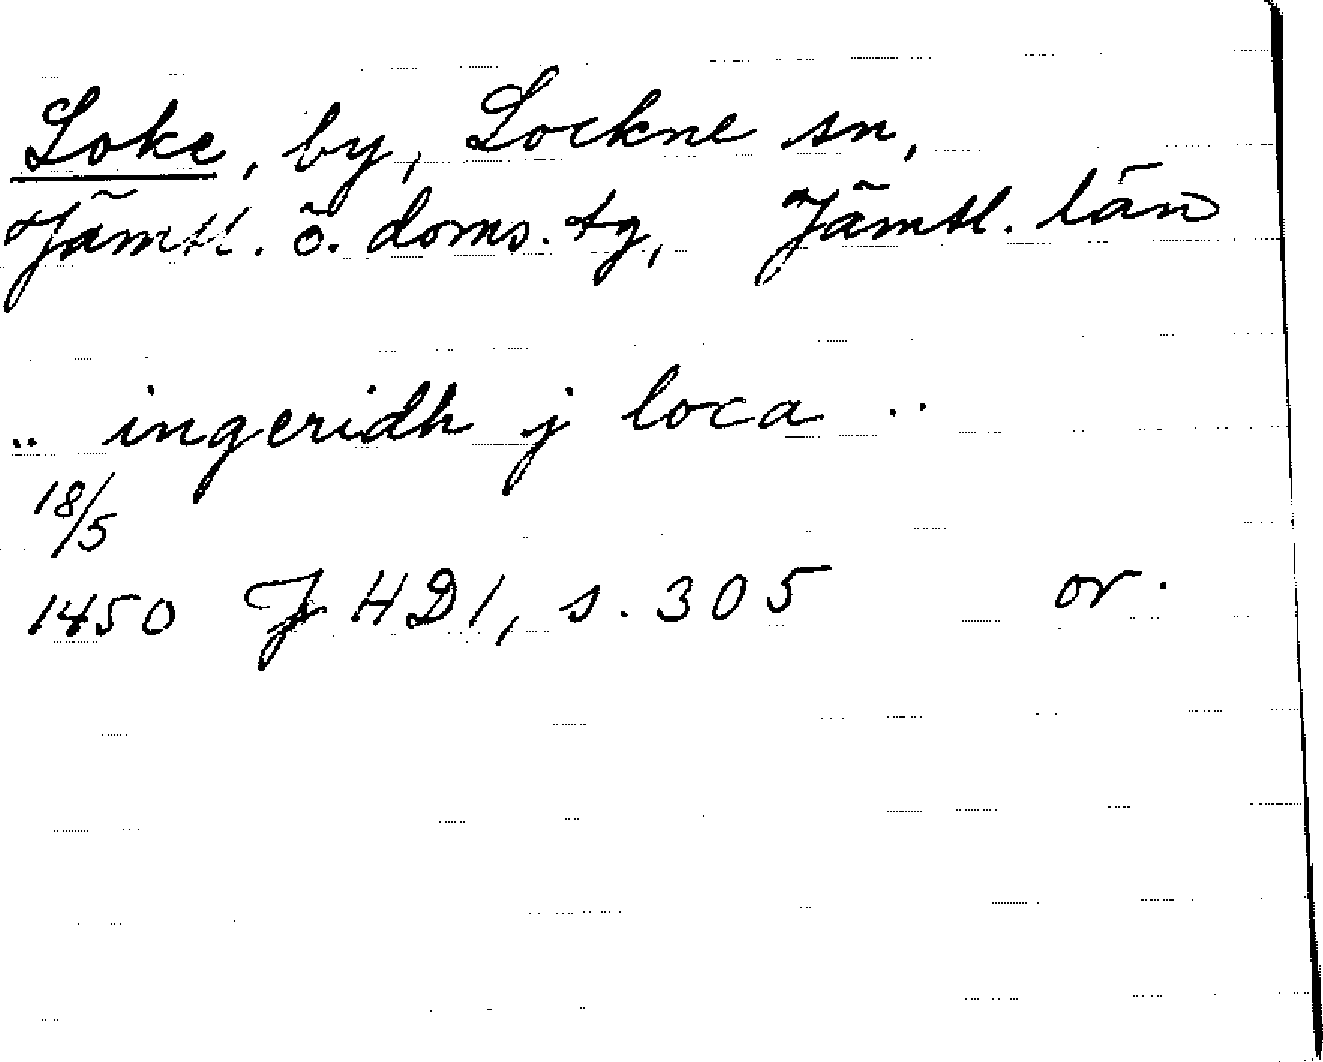 Loke, by, Lockne sn,
Jämtl. ö. doms. tg, Jämtl. län
.. ingeridh j loca ..
18/5
1450 J H D 1, s. 305 or.